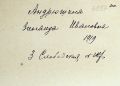 Андрюшкина
Зинаида Ивановна
1919
"З Слободская к-ца"